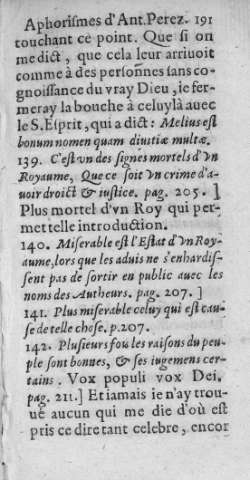 Aphorismes d'Ant. Perez. 191
touchant ce point. Que si on
me dict, que cela leur arriuoit
comme à des personnes sans co-
gnoissance du vray Dieu, ie fer-
meray la bouche à celuylà auec
le S. Esprit, qui a dict: Melius est
bonum nomen quam diuitiæ multæ.
139. C'est vn des signes mortels d'vn
Royaume, Que ce soit vn crime d'a-
uoir droict & iustice. pag. 205. ]
Plus mortel d'vn Roy qui per-
met telle introduction.
140. Miserable est l'Estat d'vn Roy-
aume, lors que les aduis ne s'enhardis-
sent pas de sortir en public auec les
noms des Autheurs. pag. 207. ]
141. Plus miserable celuy qui est cau-
se de telle chose. p. 207.
142. Plusieurs fou les raisons du peu-
ple sont bonnes, & ses iugemens cer-
tains. Vox populi vox Dei.
pag. 211.] Et iamais ie n'ay trou-
ué aucun qui me die d'où est
pris ce dire tant celebre, encor